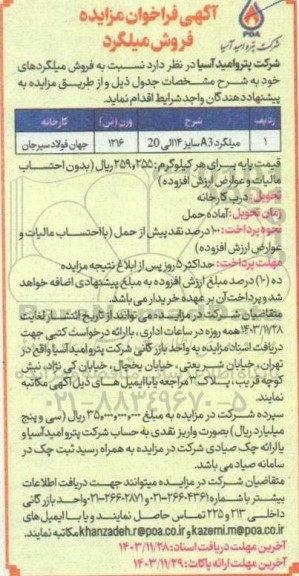 آگهی فراخوان مزایده
فروش میلگرد
POA
شرکت پترو امید آسیا
شرکت پترو امید آسیا در نظر دارد نسبت به فروش میلگردهای
خود به شرح مشخصات جدول ذیل و از طریق مزایده به
پیشنهاد دهندگان واجد شرایط اقدام نماید.
ردیف شرح وزن (تن) کارخانه
۱ میلگرد A3 سایز ۱۴ الی 20 ۱۳۱۶ جهان فولاد سیرجان
قیمت پایه برای هر کیلوگرم: ۲۵۹،۲۵۵ ریال (بدون احتساب
مالیات و عوارض ارزش افزوده)
تحویل: درب کارخانه
زمان تحویل: آماده حمل
نحوه پرداخت: ۱۰۰ درصد نقد پیش از حمل (با احتساب مالیات و
عوارض ارزش افزوده)
مهلت پرداخت: حداکثر ۵ روز پس از ابلاغ نتیجه مزایده
ده (۱۰) درصد مبلغ ارزش افزوده به مبلغ پیشنهادی اضافه خواهد
شد و پرداخت آن بر عهده خریدار می باشد.
متقاضیان شرکت در مزایده می توانند از تاریخ انتشار لغایت
۱۴۰۳/۱۱/۲۸ همه روزه در ساعات اداری، با ارائه درخواست کتبی جهت
دریافت اسناد مزایده به واحد بازرگانی شرکت پترو امید آسیا واقع در
تهران، خیابان شریعتی، خیابان یخچال، خیابان کی نژاد، نبش
کوچه قریب، پلاک ۳ مراجعه یا با ایمیل های ذیل آگهی مکاتبه
نمایند.
۰۲۱-۸۸۳۴۹۶۷۰-۵
سپرده شرکت در مزایده به مبلغ ۳۵،۰۰۰،۰۰۰،۰۰۰ ریال (سی و پنج
میلیارد ریال) بصورت واریز نقدی به حساب شرکت پترو امید آسیا و
یا ارائه چک صیادی شرکت در مزایده به همراه رسید ثبت چک در
سامانه صیاد می باشد.
متقاضیان شرکت در مزایده میتوانند جهت دریافت اطلاعات
بیشتر با شماره ۲۶۶۰۴۳۶۱-۰۲۱ و ۲۶۶۰۲۸۷۱-۰۲۱ واحد بازرگانی
داخلی ۲۱۳ و ۲۲۵ تماس حاصل نمایند و یا با ایمیل های
kazemi.m@poa.co.ir و khanzadeh.r@poa.co.ir مکاتبه نمایند.
آخرین مهلت دریافت اسناد: ۱۴۰۳/۱۱/۲۸
آخرین مهلت ارائه پاکات: ۱۴۰۳/۱۱/۲۹